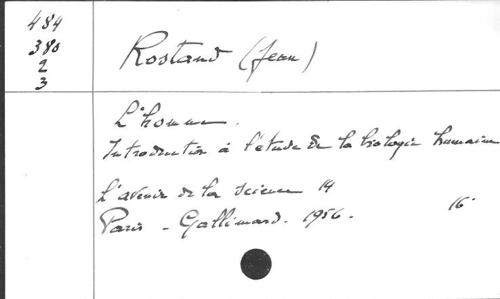 484
380
2
3
Rostand (Jean)
L'homme.
Introduction à l'étude de la biologie humaine
L'avenir de la science 14
Paris - Gallimard. 1956.
16°